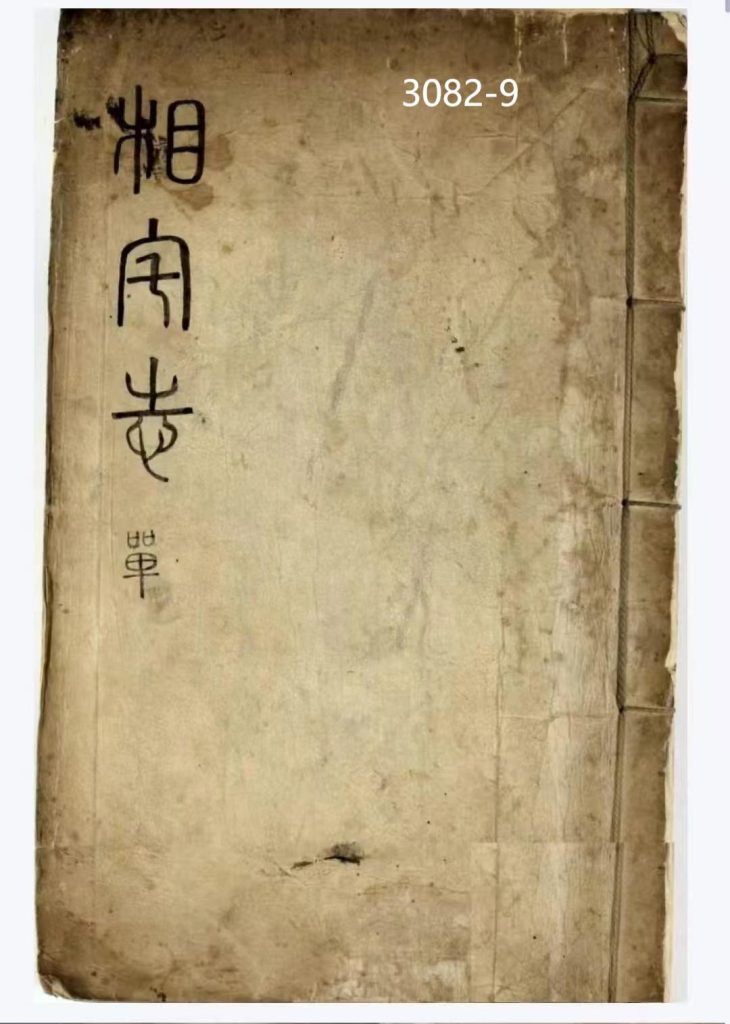 3082-9
相宅志 單